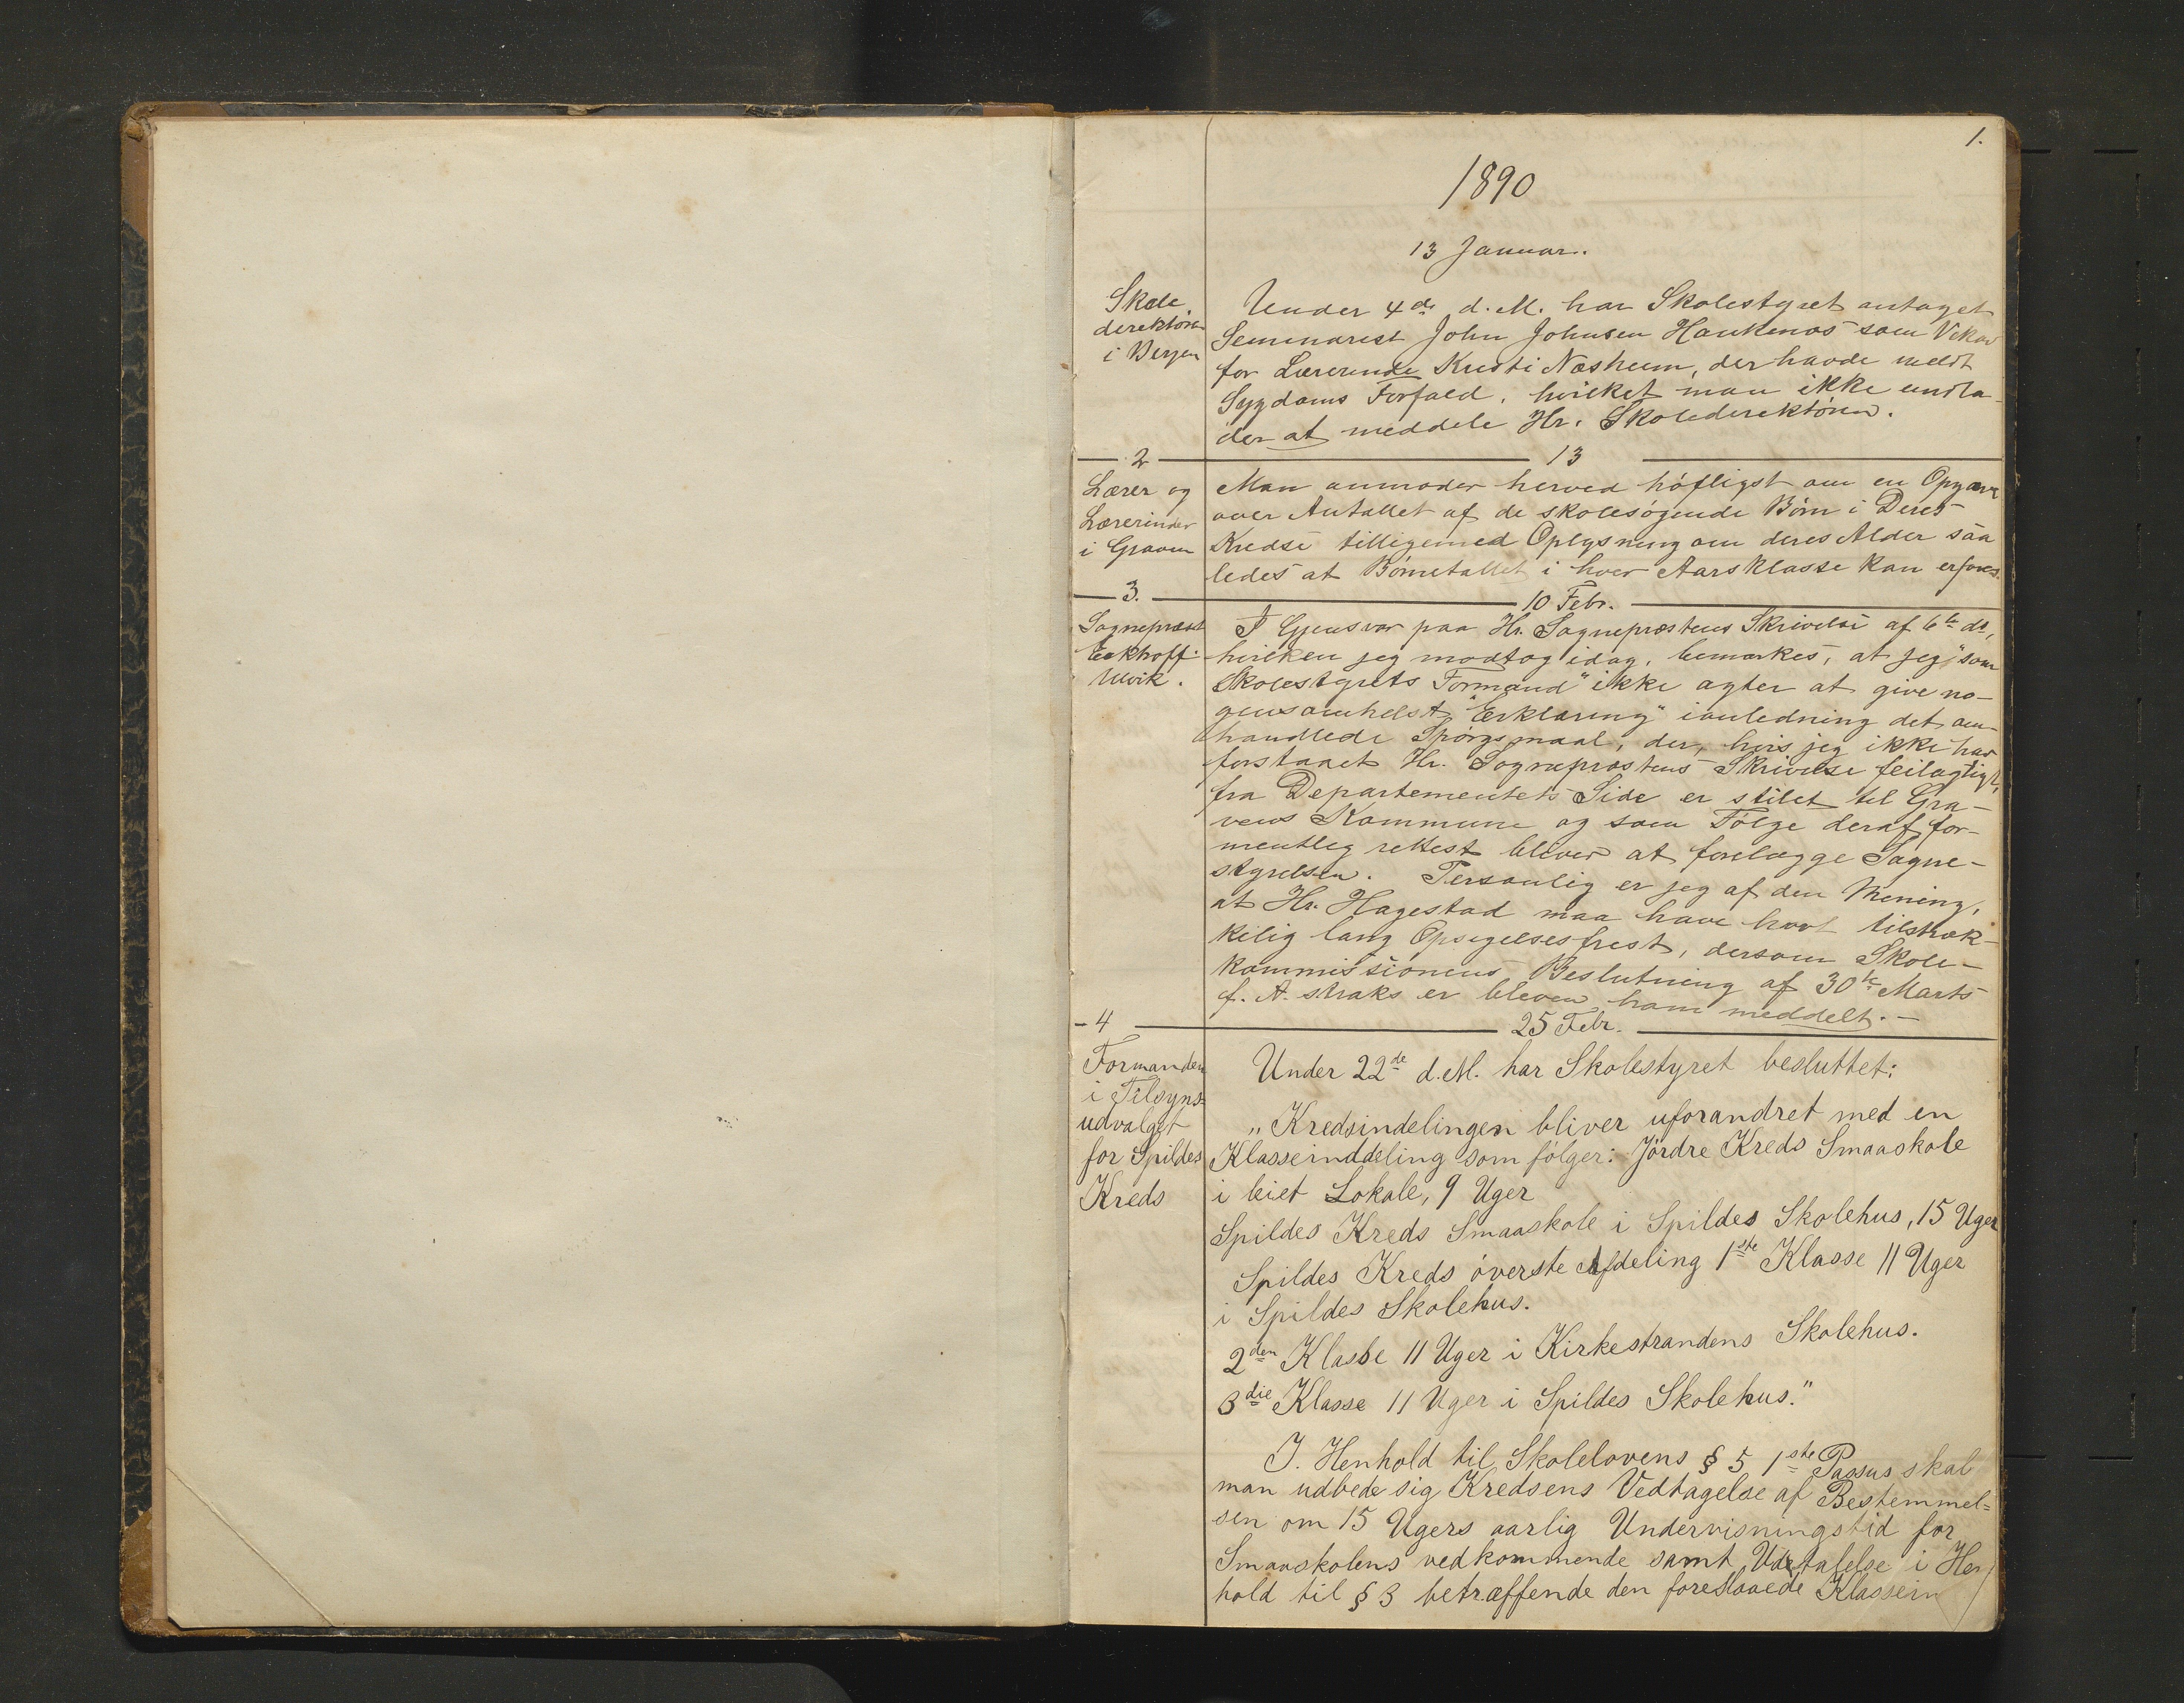 1.
1890
13 Januar.
Skole
direktøren
i Bergen
Under 4de d. M. har Skolestyret antaget
Seminarist John Johnsen Haukenæs som Vikar
for Lærerinde Kristi Næsheim, der havde meldt
Sygdoms Forfald, hvilket man ikke undla-
der at meddele Hr. Skoledirektøren.
2
13
Lærer og
Lærerinder
i Graven
Man anmoder herved høfligst om en Opgave
over Antallet af de skolesøgende Børn i Deres
Kredse tilligemed Oplysning om deres Alder saa
ledes at Børnetallet i hver Aarsklasse kan erfares.
3.
10 Febr.
Sognepræst
Eckhoff
Ulvik.
I Gjensvar paa Hr. Sognepræstens Skrivelse af 6te ds,
hvilken jeg modtog idag, bemærkes, at jeg "som
Skolestyrets Formand" ikke agter at give no-
gensomhelst "Erklæring" i anledning det om-
handlede Spørgsmaal, der, hvis jeg ikke har
forstaaet Hr. Sognepræstens Skrivelse feilagtigt,
fra Departementets Side er stilet til Gra-
vens Kommune og som Følge deraf for-
mentlig rettest bliver at forelægge Sogne-
styrelsen. Personlig er jeg af den Mening,
at Hr. Hagestad maa have havt tilstræk-
kelig lang Opsigelsesfrist, dersom Skole-
kommissionens Beslutning af 30te Marts
f. A. straks er bleven ham meddelt. -
4
25 Febr.
Formanden
i Tilsyns=
udvalget
for Spildes
Kreds
Under 22de d. M. har Skolestyret besluttet:
„Kredsindelingen bliver uforandret med en
Klasseinddeling som følger: Jørdre Kreds Smaaskole
i leiet Lokale, 9 Uger
Spildes Kreds Smaaskole i Spildes Skolehus, 15 Uger
Spildes Kreds øverste Afdeling 1ste Klasse 11 Uger
i Spildes Skolehus.
2den Klasse 11 Uger i Kirkestrandens Skolehus.
3die Klasse 11 Uger i Spildes Skolehus."
I. Henhold til Skolelovens § 5 1ste Passus skal
man udbede sig Kredsens Vedtagelse af Bestemmel=
sen om 15 Ugers aarlig Undervisningstid for
Smaaskolens vedkommende samt Udtalelse i Hen
hold til § 3 betræffende den foreslaaede Klassein